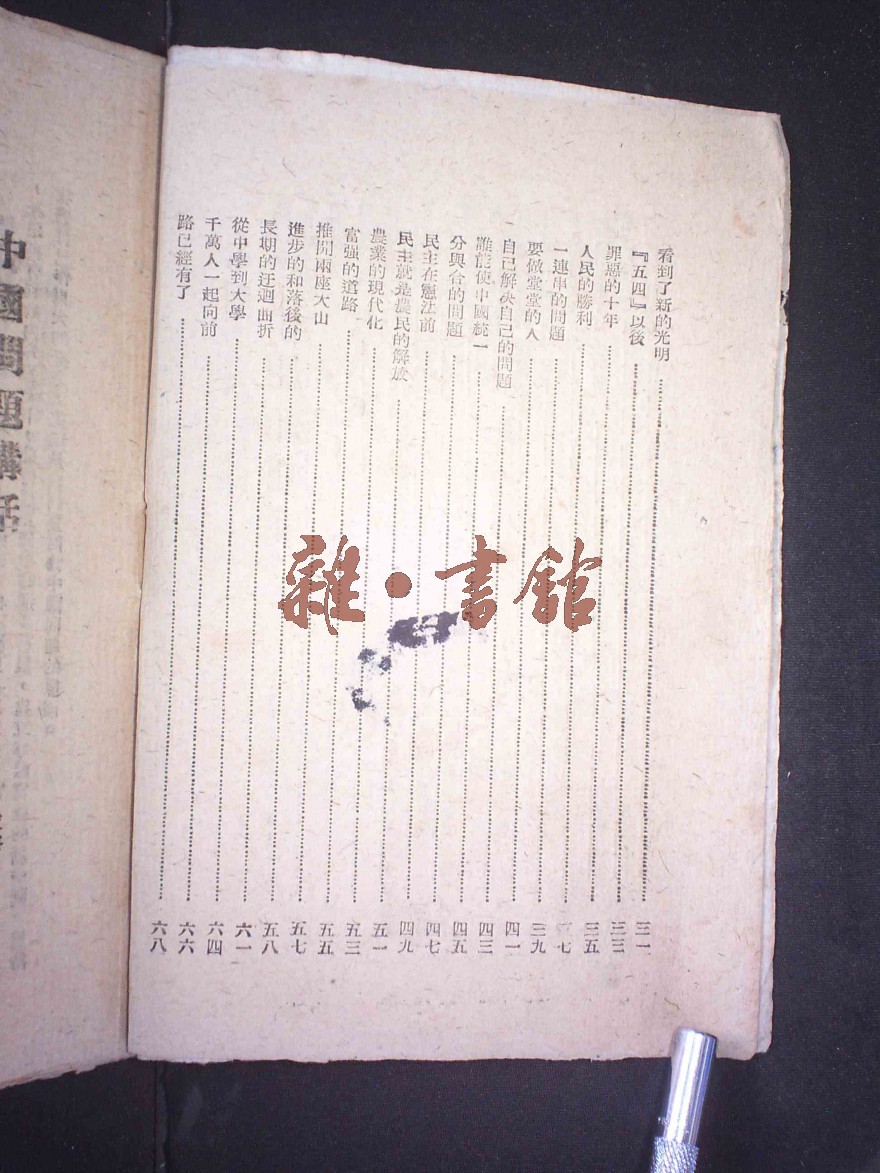 看到了新的光明 三一
『五四』以後 三三
罪惡的十年 三五
人民的勝利 七
一連串的問題 三九
要做堂堂的人 四一
自己解決自己的問題 四三
誰能使中國統一 四五
分與合的問題 四七
民主在憲法前 四九
民主就是農民的解放 五一
農業的現代化 五三
富强的道路 五五
推開兩座大山 五七
進步的和落後的 五八
長期的迂迴曲折 六一
從中學到大學 六四
千萬人一起向前 六六
路已經有了 六八
中國問題講話
雜·書館